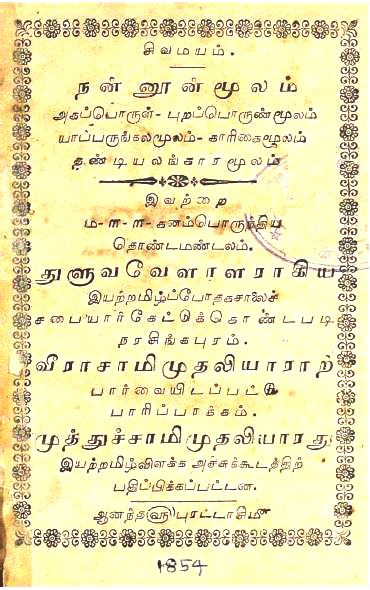 சிவமயம்.
நன்னூன்மூலம்
அகப்பொருள்-புறப்பொருண்மூலம்
யாப்பருங்கலமூலம்-காரிகைமூலம்
தண்டியலங்காரமூலம்
இவற்றை
ம-ள-ள-கனம்பொருந்திய
தொண்டமண்டலம்.
துளுவவேளாளராகிய
இயற்றமிழ்ப்போதகசாலைச்
சபையார்கேட்டுக்கொண்டபடி
நரசிங்கபுரம்.
வீராசாமிமுதலியாராற்
பார்வையிடப்பட்டு
பாரிப்பாக்கம்.
முத்துச்சாமிமுதலியாரது
இயற்றமிழ்விளக்கஅச்சுக்கூடத்திற்
பதிப்பிக்கப்பட்டன.
ஆனந்த௵புரட்டாசி௴
1854